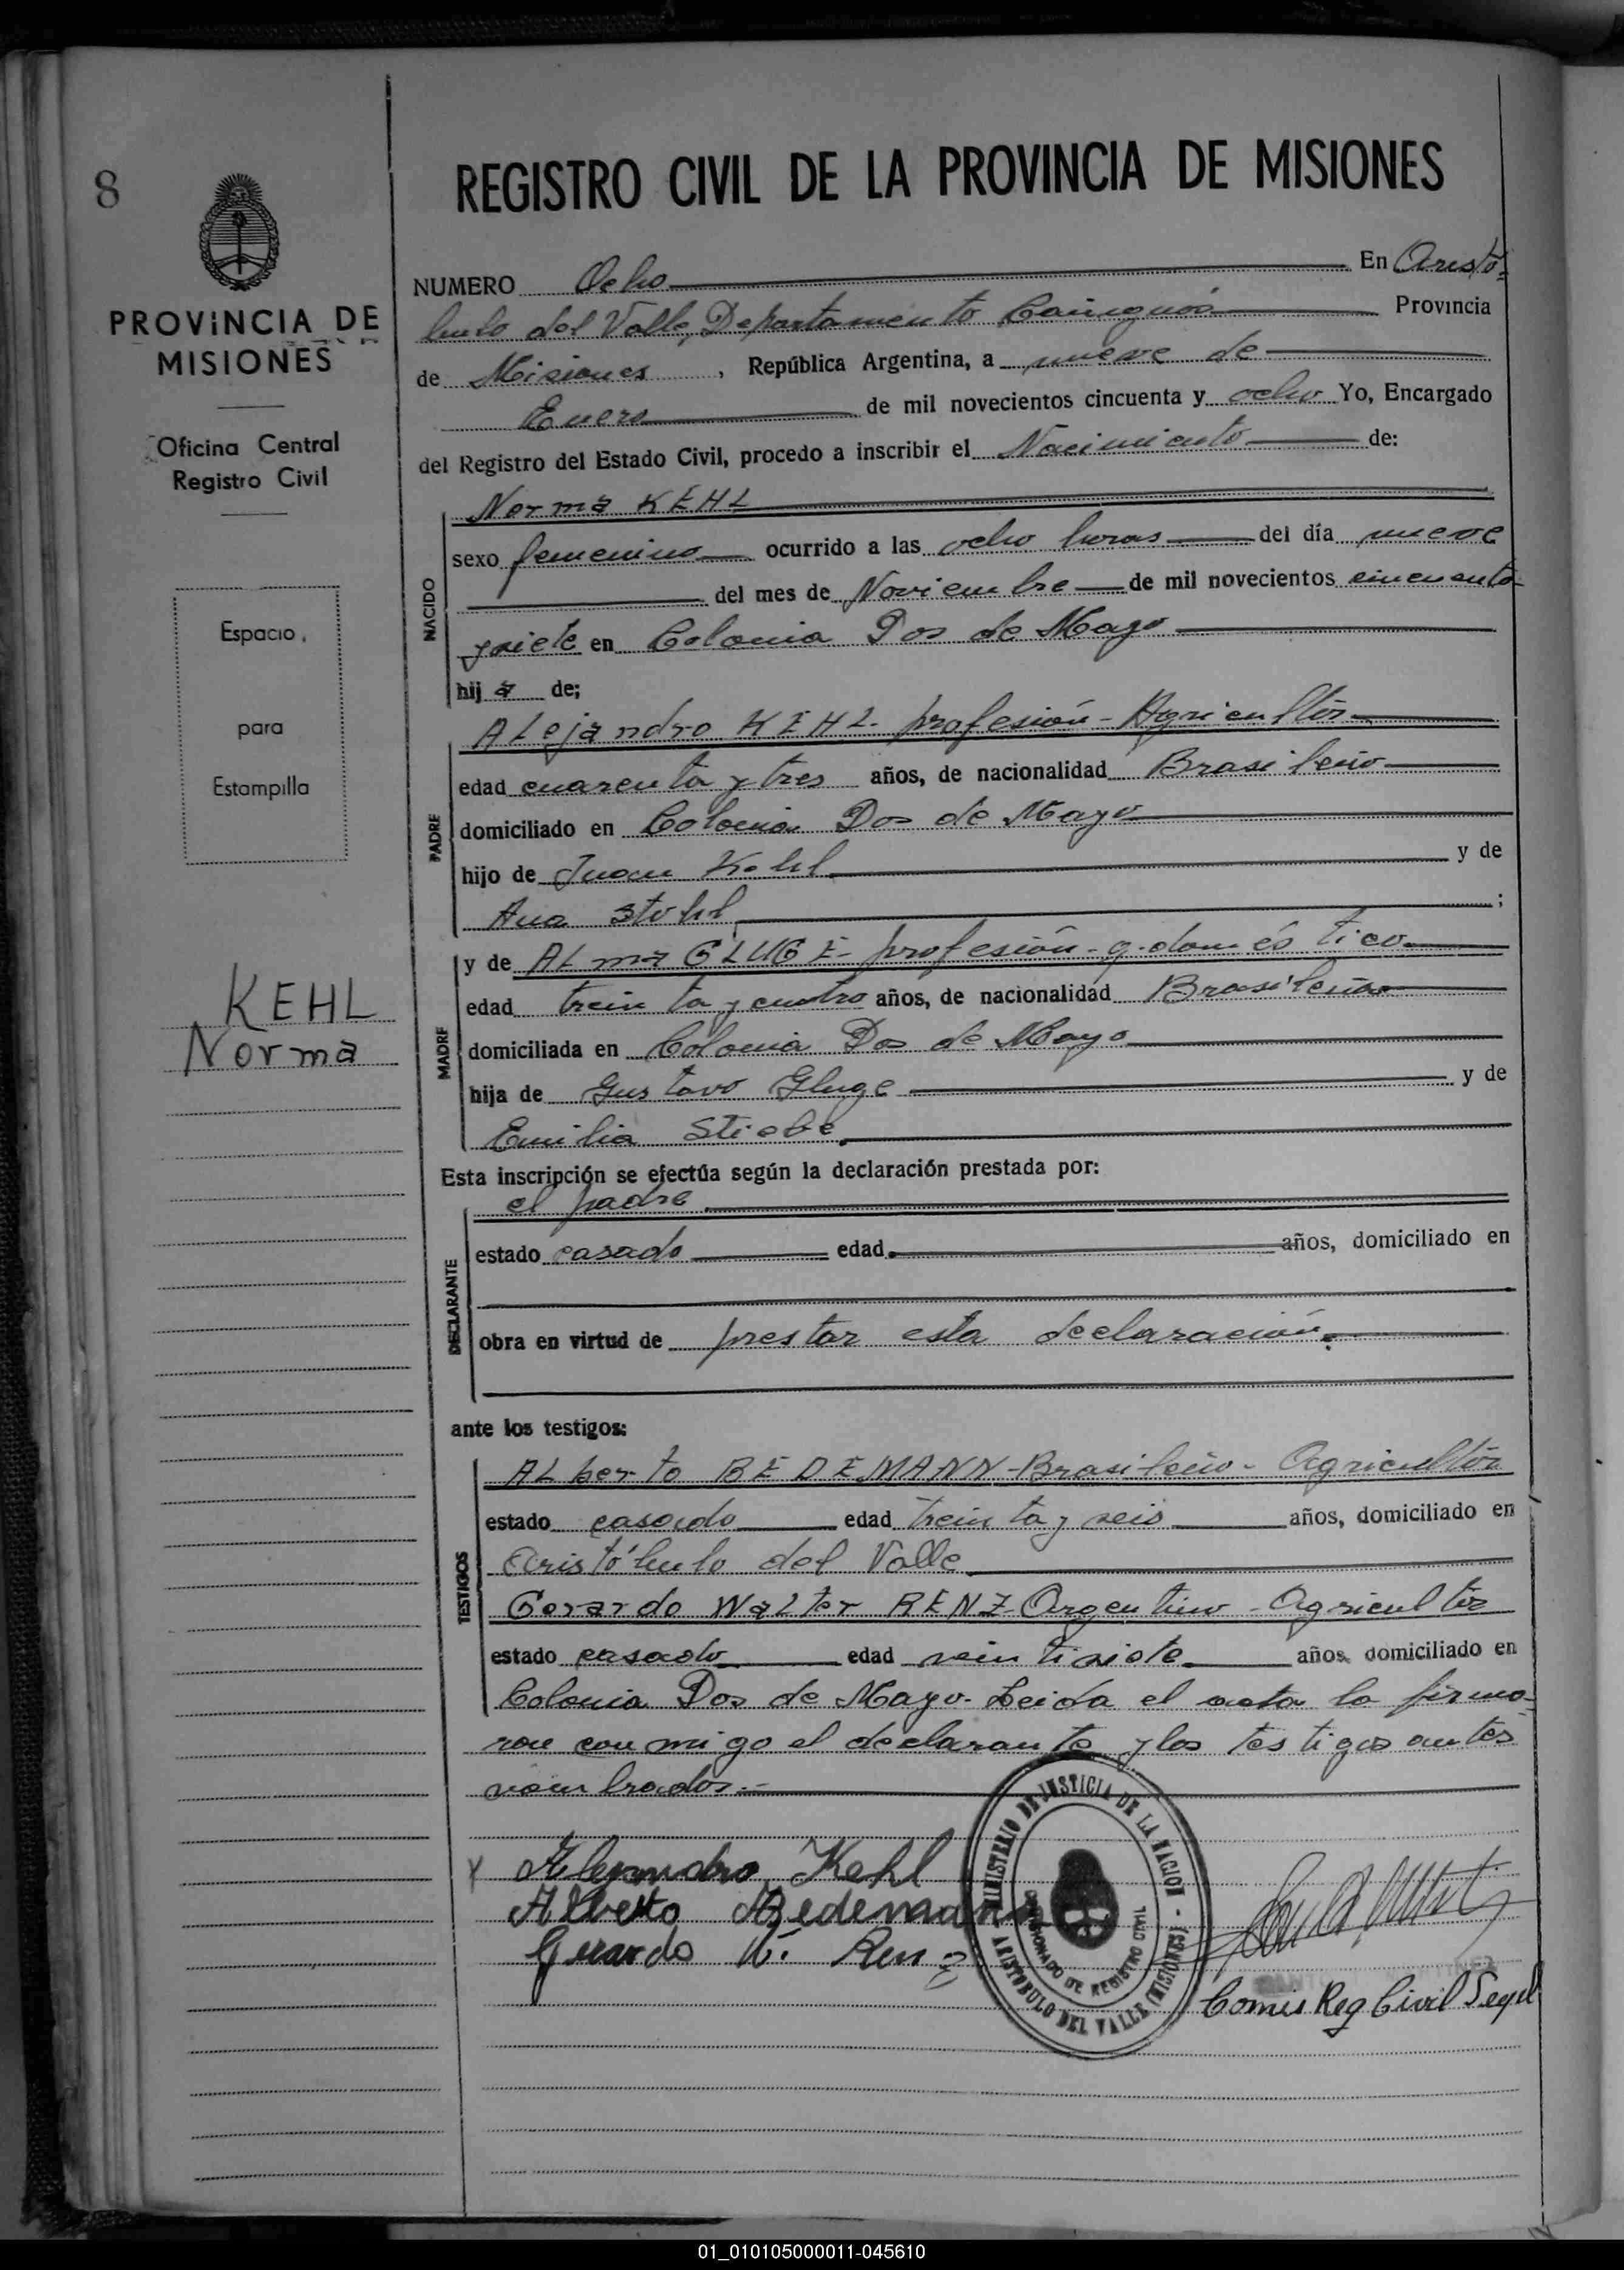 8
PROVINCIA DE
MISIONES
Oficina Central
Registro Civil
Espacio
para
Estampilla
KEHL
Norma
REGISTRO CIVIL DE LA PROVINCIA DE MISIONES
NUMERO Ocho En Aristó-
bulo del Valle, Departamento Cainguás Provincia
de Misiones, República Argentina, a nueve de
Enero de mil novecientos cincuenta y ocho Yo, Encargado
del Registro del Estado Civil, procedo a inscribir el Nacimiento de:
NACIDO
Norma KEHL
sexo femenino ocurrido a las ocho horas del día nueve
del mes de Noviembre de mil novecientos cincuenta
y siete en Colonia Dos de Mayo
hija de;
PADRE
Alejandro KEHL- profesión - Agricultor
edad cuarenta y tres años, de nacionalidad Brasileño
domiciliado en Colonia Dos de Mayo
hijo de Juan Kehl y de
Ana Stohl ;
MADRE
y de Alma GLUGE- profesión- q. doméstico
edad treinta y cuatro años, de nacionalidad Brasileña
domiciliada en Colonia Dos de Mayo
hija de Gustavo Gluge y de
Emilia Stiebe
Esta inscripción se efectúa según la declaración prestada por:
DECLARANTE
el padre
estado casado edad años, domiciliado en
obra en virtud de prestar esta declaración.
ante los testigos:
TESTIGOS
Alberto BEDEMANN-Brasileño- Agricultor
estado casado edad treinta y seis años, domiciliado en
Aristóbulo del Valle
Gerardo Walter RENZ-Argentino - Agricultor
estado casado edad veintisiete años, domiciliado en
Colonia Dos de Mayo- Leida el acta la firma-
ron conmigo el declarante y los testigos antes
nombrados.-
Alejandro Kehl
Alberto Bedemann
Gerardo W. Renz
MINISTERIO DE JUSTICIA DE LA NACION - ARISTOBULO DEL VALLE (MISIONES)
COMISIONADO DE REGISTRO CIVIL
Comis Reg Civil
01_010105000011-045610